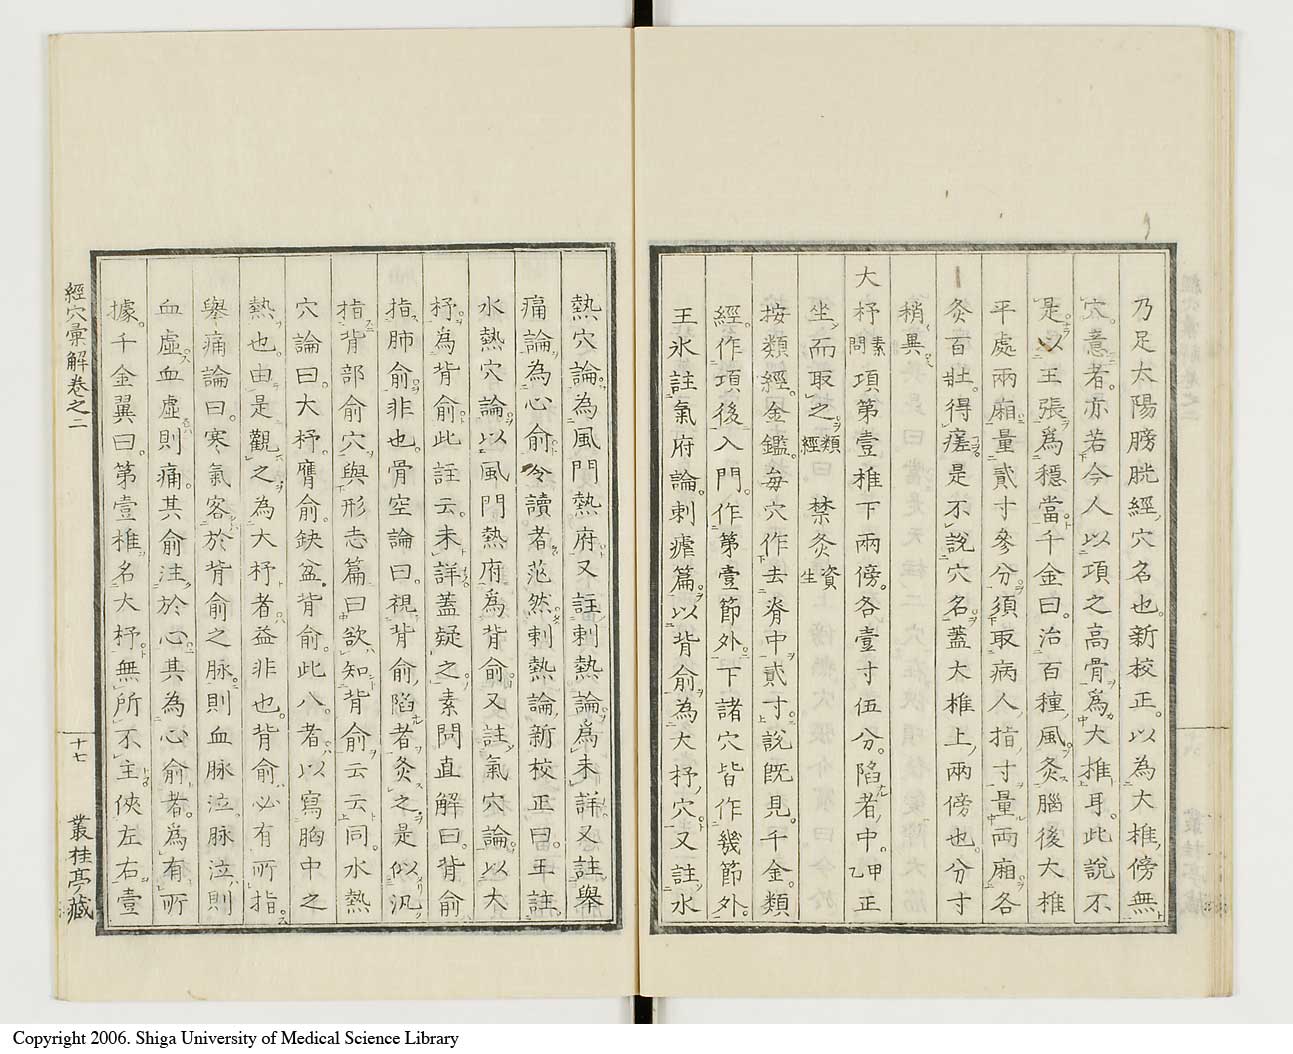 乃足太陽膀胱經穴名也。新校正。以為大椎傍無
穴意者。亦若今人以項之高骨爲大椎耳。此說不
是。以王張爲穩當。千金曰。治百種風。灸腦後大椎
平處兩廂。量貳寸參分。須取病人指寸。量兩廂各
灸百壯。得瘥。是不說穴名。蓋大椎上兩傍也。分寸
稍異。
大杼素問項第壹椎下兩傍。各壹寸伍分。陷者中。甲乙正
坐而取之類經禁灸資生
按類經。金鑑。每穴作去脊中貳寸。說旣見。千金。類
經。作項後。入門。作第壹節外。下諸穴皆作幾節外。
王氷註氣府論。刺瘧篇。以背俞為大杼穴。又註水
熱穴論。為風門熱府。又註刺熱論。爲未詳。又註舉
痛論。為心俞。令讀者茫然。刺熱論。新校正曰。王註
水熱穴論。以風門熱府為背俞。又註氣穴論。以大
杼為背俞。此註云。未詳。蓋疑之。素問直解曰。背俞
指肺俞。非也。骨空論曰。視背俞陷者灸之。是似汎
指背部俞穴。與形志篇曰欲知背俞云云同。水熱
穴論曰。大杼膺俞。缺盆背俞。此八者。以寫胸中之
熱也。由是觀之。為大杼者益非也。背俞必有所指。
舉痛論曰。寒氣客於背俞之脉。則血脉泣。脉泣則
血虛。血虛則痛。其俞注於心。其為心俞者。為有所
據。千金翼曰。第壹椎名大杼。無所不主。俠左右壹
經穴彙解卷之二
十七
叢桂亭藏
Copyright 2006. Shiga University of Medical Science Library